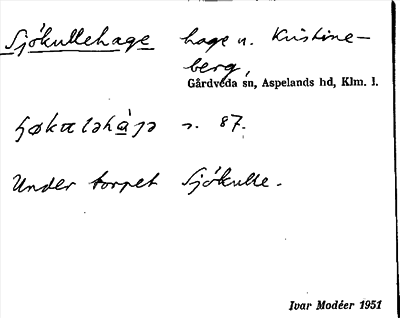 Sjökullehage hage u. Kristine-
berg,
Gårdveda sn, Aspelands hd, Klm. l.
s. 87.
Under torpet Sjökulle.
Ivar Modéer 1951